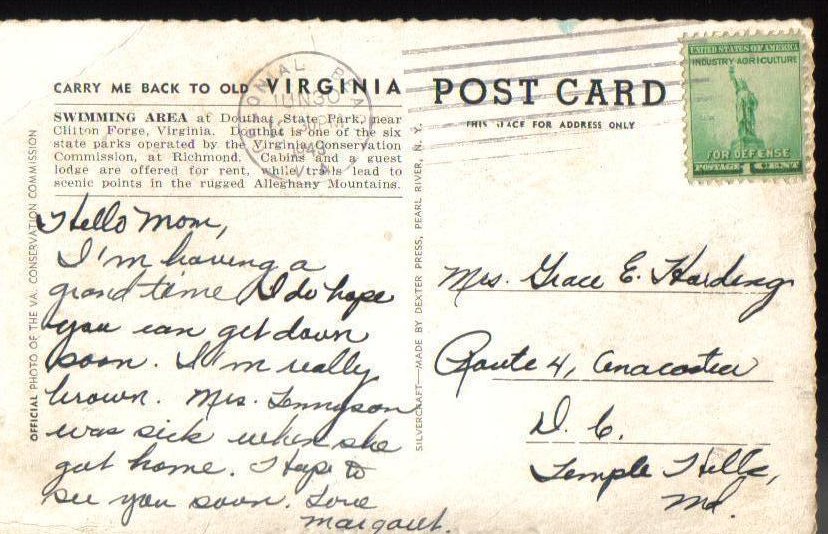 CARRY ME BACK TO OLD VIRGINIA
SWIMMING AREA at Douthat State Park, near
Clifton Forge, Virginia. Douthat is one of the six
state parks operated by the Virginia Conservation
Commission, at Richmond. Cabins and a guest
lodge are offered for rent, while trails lead to
scenic points in the rugged Alleghany Mountains.
OFFICIAL PHOTO OF THE VA. CONSERVATION COMMISSION
Hello Mom,
I'm having a
grand time I do hope
you can get down
soon. I'm really
brown. Mrs. Tennyson
was sick when she
got home. I hope to
see you soon. Love
Margaret.
SILVERCRAFT—MADE BY DEXTER PRESS, PEARL RIVER, N. Y.
POST CARD
THIS SPACE FOR ADDRESS ONLY
JUN 30
VA
UNITED STATES OF AMERICA
INDUSTRY AGRICULTURE
FOR DEFENSE
POSTAGE 1 CENT
Mrs. Grace E. Harding
Route 4, Anacostia
D. C.
Temple Hills,
Md.